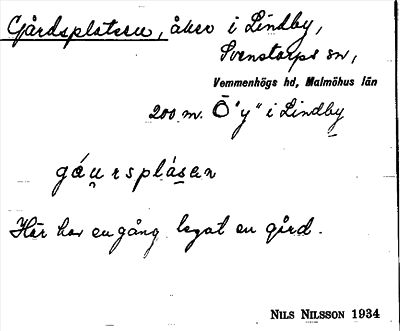 Gårdsplatsen, åker i Lindby,
Svenstorps sn,
Vemmenhögs hd, Malmöhus län
200 m. Ö "y" i Lindby
gáu̯rsplásan
Här har en gång legat en gård.
NILS NILSSON 1934